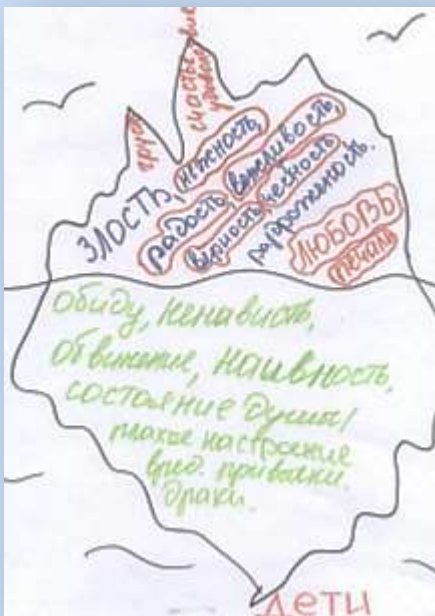 счастье
ЗЛОСТЬ, нежность,
радость, вежливость,
верность, честность
раздраженость.
ЛЮБОВЬ
печаль
обиду, ненависть,
обвинение, наивность,
состояние души/
плохое настроение
вред. привычки.
драки.
дети